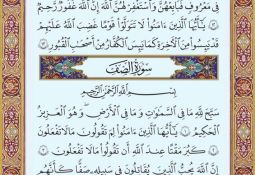 فِى مَعْرُوفٍ فَبَايِعْهُنَّ وَٱسْتَغْفِرْ لَهُنَّ ٱللَّهَ إِنَّ ٱللَّهَ غَفُورٌ رَّحِيمٌ
١٢ يَٰٓأَيُّهَا ٱلَّذِينَ ءَامَنُوا۟ لَا تَتَوَلَّوْا۟ قَوْمًا غَضِبَ ٱللَّهُ عَلَيْهِمْ
قَدْ يَئِسُوا۟ مِنَ ٱلْءَاخِرَةِ كَمَا يَئِسَ ٱلْكُفَّارُ مِنْ أَصْحَٰبِ ٱلْقُبُورِ ١٣
سُورَةُ ٱلصَّفِّ
بِسْمِ ٱللَّهِ ٱلرَّحْمَٰنِ ٱلرَّحِيمِ
سَبَّحَ لِلَّهِ مَا فِى ٱلسَّمَٰوَٰتِ وَمَا فِى ٱلْأَرْضِ وَهُوَ ٱلْعَزِيزُ
ٱلْحَكِيمُ ١ يَٰٓأَيُّهَا ٱلَّذِينَ ءَامَنُوا۟ لِمَ تَقُولُونَ مَا لَا تَفْعَلُونَ
٢ كَبُرَ مَقْتًا عِندَ ٱللَّهِ أَن تَقُولُوا۟ مَا لَا تَفْعَلُونَ ٣
إِنَّ ٱللَّهَ يُحِبُّ ٱلَّذِينَ يُقَٰتِلُونَ فِى سَبِيلِهِۦ صَفًّا كَأَنَّهُم